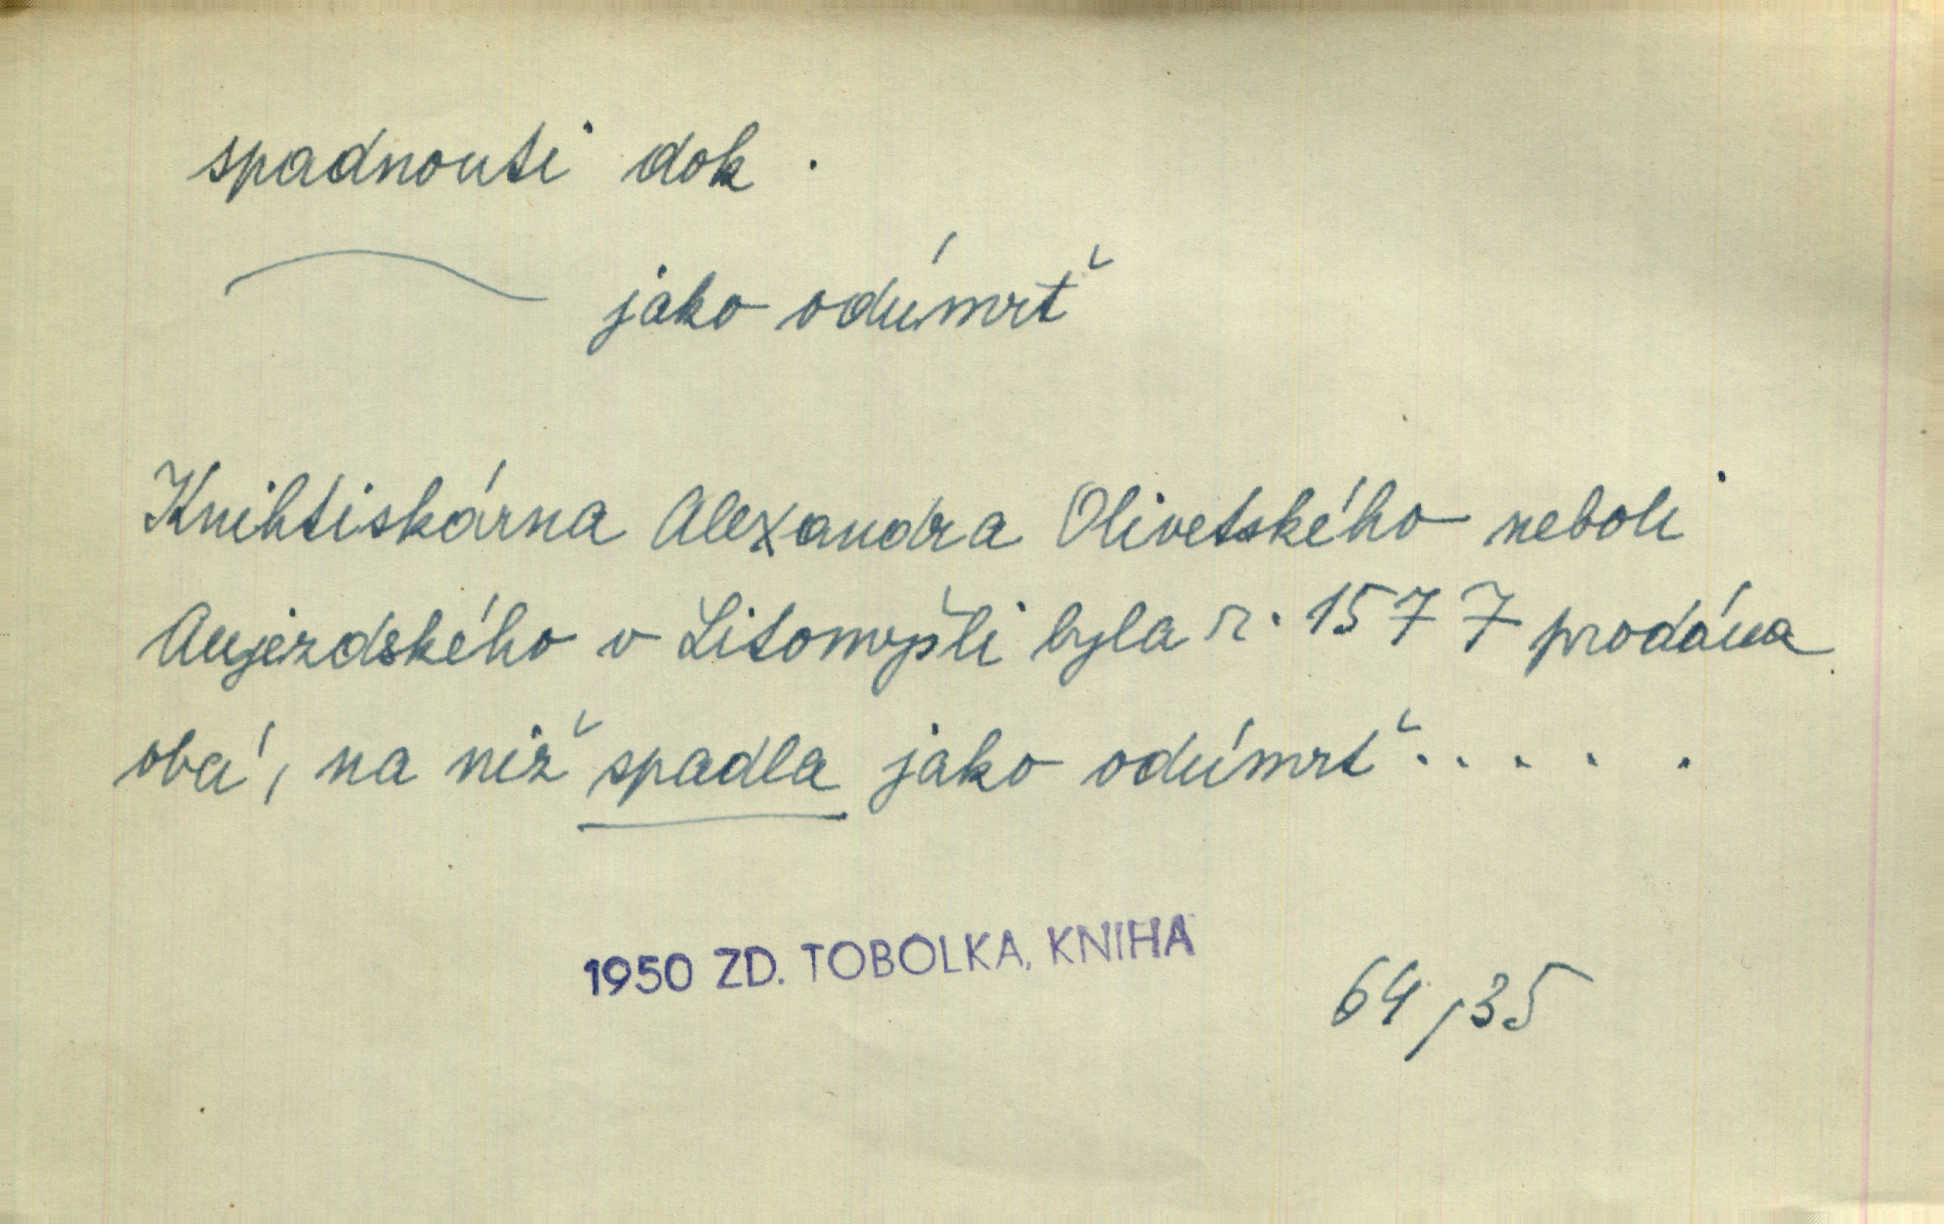 spadnouti dok.
jako odúmrť
Knihtiskárna Alexandra Olivetského neboli
Aujezdského v Litomyšli byla r. 1577 prodána
obcí, na niž spadla jako odúmrť.....
1950 ZD. TOBOLKA, KNIHA
64,35